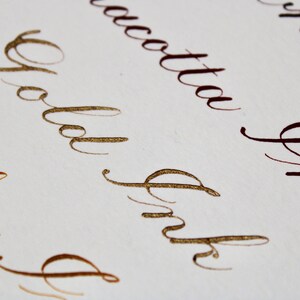 acotta
Gold Ink